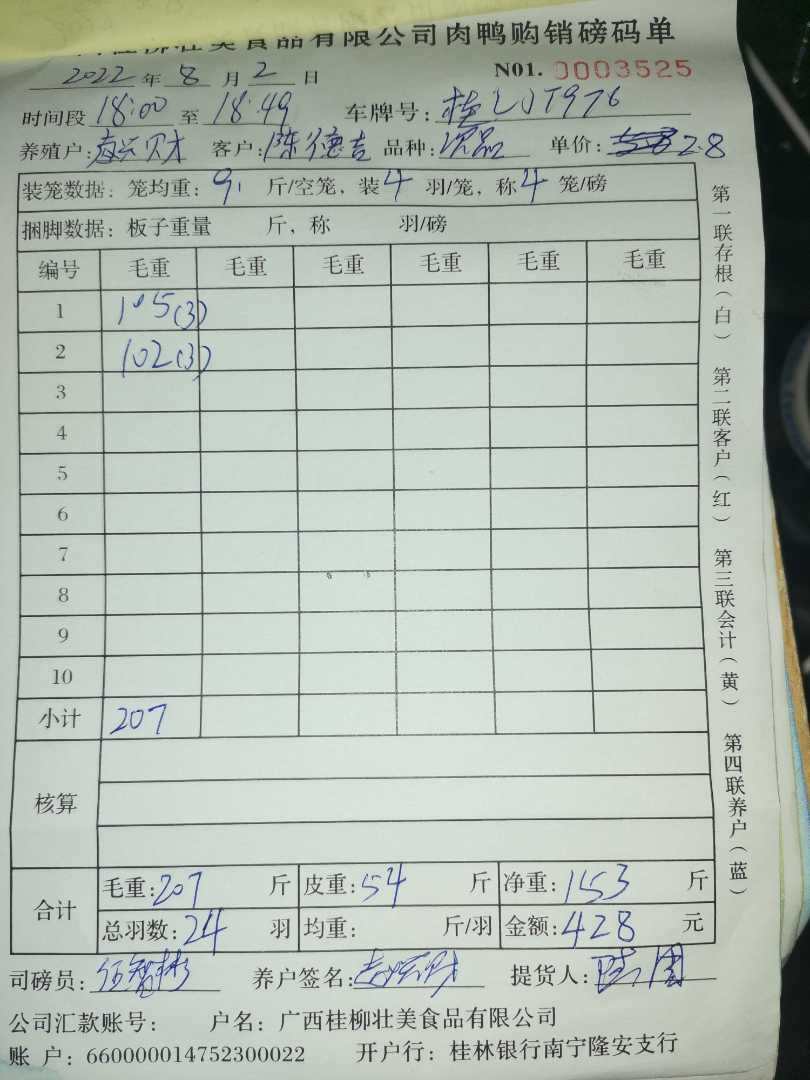 桂柳壮美食品有限公司肉鸭购销磅码单
2022 年 8 月 2 日 N01. 0003525
时间段 18:00 至 18:49 车牌号:
养殖户: 客户: 陈德吉 品种: 次品 单价: 2.8
装笼数据: 笼均重: 9 斤/空笼, 装 4 羽/笼, 称 4 笼/磅
捆脚数据: 板子重量 斤, 称 羽/磅
编号 毛重 毛重 毛重 毛重 毛重 毛重
1 105(3)
2 102(3)
3
4
5
6
7
8
9
10
小计 207
核算
合计
毛重: 207 斤 皮重: 54 斤 净重: 153 斤
总羽数: 24 羽 均重: 斤/羽 金额: 428 元
司磅员: 养户签名: 提货人:
公司汇款账号: 户名: 广西桂柳壮美食品有限公司
账 户: 660000014752300022 开户行: 桂林银行南宁隆安支行
第一联存根(白) 第二联客户(红) 第三联会计(黄) 第四联养户(蓝)